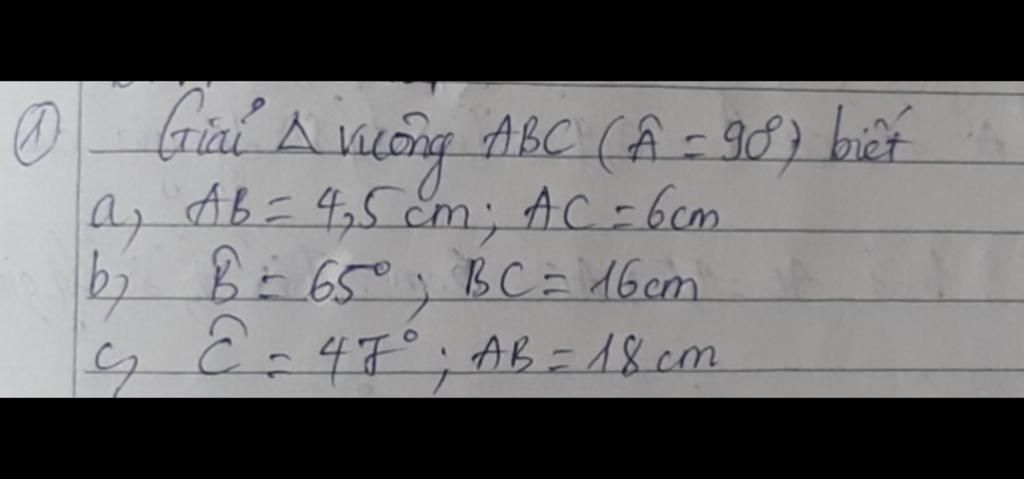 ① Giải Δ vuông ABC (Â = 90°) biết
a, AB = 4,5 cm; AC = 6cm
b, B̂ = 65°; BC = 16cm
c, Ĉ = 47°; AB = 18 cm